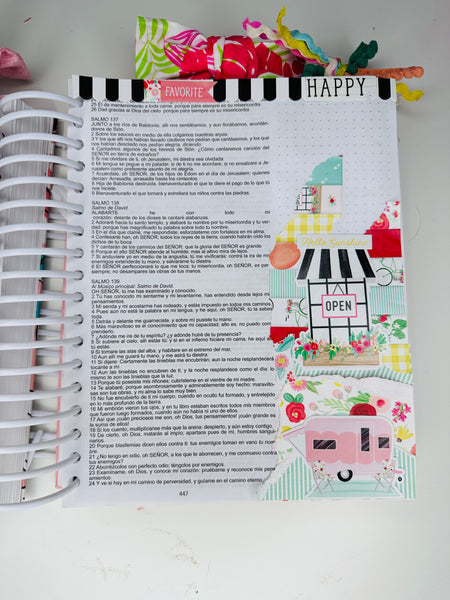 FAVORITE
HAPPY
25 El da mantenimiento a toda carne, porque para siempre es su misericordia
26 Dad gracias al Dios del cielo: porque para siempre es su misericordia
SALMO 137
JUNTO a los ríos de Babilonia, allí nos sentábamos, y aun llorábamos, acordándonos de Sión.
2 Sobre los sauces en medio de ella colgamos nuestras arpas.
3 Y los que allí nos habían llevado cautivos nos pedían que cantásemos, y los que habían desolado nos pedían alegría, diciendo:
4 Cantadnos algunos de los himnos de Sión. ¿Cómo cantaremos canción del SEÑOR en tierra de extraños?
5 Si me olvidare de ti, oh Jerusalén, mi diestra sea olvidada.
6 Mi lengua se pegue a mi paladar, si de ti no me acordare; si no ensalzare a Jerusalem como preferente asunto de mi alegría.
7 Acuérdate, oh SEÑOR, de los hijos de Edom en el día de Jerusalem; quienes decían: Arrasadla, arrasadla hasta los cimientos.
8 Hija de Babilonia destruida, bienaventurado el que te diere el pago de lo que tú nos hiciste.
9 Bienaventurado el que tomará y estrellará tus niños contra las piedras.
SALMO 138
Salmo de David.
ALABARTE he con todo mi
corazón; delante de los dioses te cantaré alabanzas.
2 Adoraré hacia tu santo templo, y alabaré tu nombre por tu misericordia y tu verdad: porque has magnificado tu palabra sobre todo tu nombre.
3 En el día que clamé, me respondiste; esforzásteme con fortaleza en mi alma.
4 Confesarte han, oh SEÑOR, todos los reyes de la tierra, cuando habrán oído los dichos de tu boca.
5 Y cantarán de los caminos del SEÑOR: que la gloria del SEÑOR es grande.
6 Porque el alto SEÑOR atiende al humilde; mas al altivo mira de lejos.
7 Si anduviere yo en medio de la angustia, tú me vivificarás: contra la ira de mis enemigos extenderás tu mano, y salvarame tu diestra.
8 El SEÑOR perfeccionará lo que me toca: tu misericordia, oh SEÑOR, es para siempre; no desampares las obras de tus manos.
SALMO 139
Al Músico principal: Salmo de David.
OH SEÑOR, tú me has examinado y conocido.
2 Tú has conocido mi sentarme y mi levantarme, has entendido desde lejos mis pensamientos.
3 Mi senda y mi acostarme has rodeado, y estás impuesto en todos mis caminos.
4 Pues aún no está la palabra en mi lengua, y he aquí, oh SEÑOR, tú la sabes toda.
5 Detrás y delante me guarneciste, y sobre mí pusiste tu mano.
6 Más maravillosa es el conocimiento que mi capacidad; alto es, no puedo comprenderlo.
7 ¿Adónde me iré de tu espíritu? ¿y adónde huiré de tu presencia?
8 Si subiere al cielo, allí estás tú: y si en el infierno hiciere mi cama, he aquí allí tú estás.
9 Si tomare las alas del alba, y habitare en el extremo del mar,
10 Aun allí me guiará tu mano, y me asirá tu diestra.
11 Si dijere: Ciertamente las tinieblas me encubrirán; aun la noche resplandecerá tocante a mí.
12 Aun las tinieblas no encubren de ti, y la noche resplandece como el día: lo mismo te son las tinieblas que la luz.
13 Porque tú poseíste mis riñones; cubrísteme en el vientre de mi madre.
14 Te alabaré; porque asombrosamente y admirablemente soy hecho: maravillosas son tus obras, y mi alma lo sabe muy bien.
15 No fue encubierto de ti mi cuerpo, cuando en oculto fui formado, y entretejido en lo más profundo de la tierra.
16 Mi embrión vieron tus ojos, y en tu libro estaban escritos todos mis miembros que fueron luego formados, cuando aún no había ni uno de ellos.
17 Así que ¡cuán preciosos me son, oh Dios, tus pensamientos! ¡cuán grande es la suma de ellos!
18 Si los cuento, multiplícanse más que la arena: despierto, y aún estoy contigo.
19 De cierto, oh Dios, matarás al impío: apartaos pues de mí, hombres sanguinarios.
20 Porque blasfemias dicen ellos contra ti: tus enemigos toman en vano tu nombre.
21 ¿No tengo en odio, oh SEÑOR, a los que te aborrecen, y me conmuevo contra tus enemigos?
22 Aborrézcolos con perfecto odio; téngolos por enemigos.
23 Examíname, oh Dios, y conoce mi corazón: pruébame y reconoce mis pensamientos:
24 Y ve si hay en mí camino de perversidad, y guíame en el camino eterno.
447
Hello Sunshine
OPEN